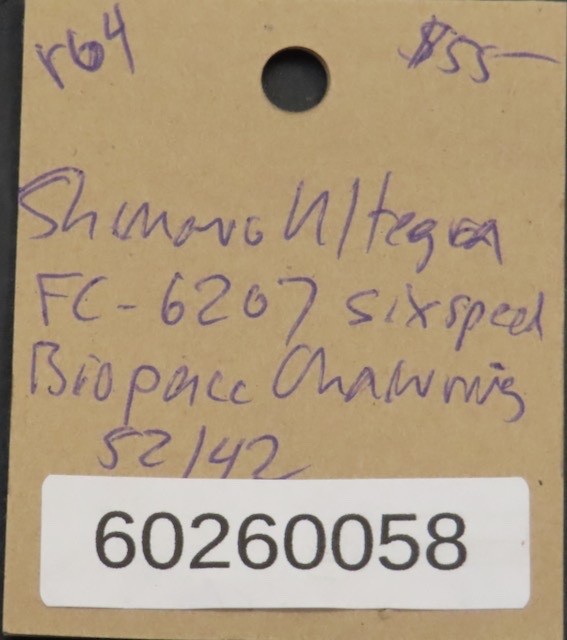 r64 $55—
Shimano Ultegra
FC-6207 six speed
Biopace Chainring
52/42
60260058